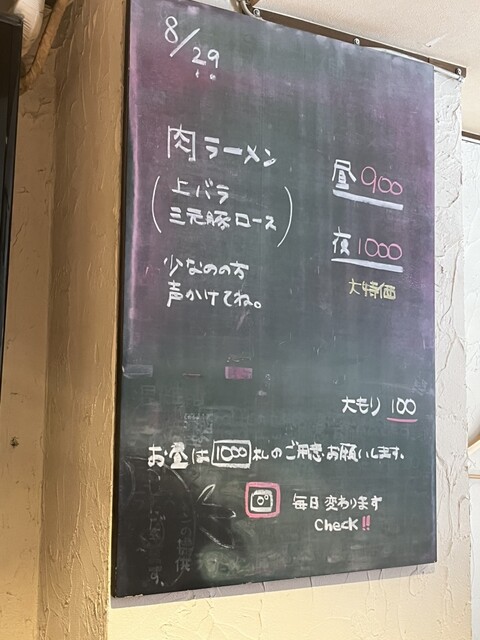 8/29
肉ラーメン
(上バラ
三元豚ロース)
少なめの方
声かけてね。
昼900
夜1000
大特価
大もり 100
お昼は1000札のご用意お願いします。
毎日変わります
check!!